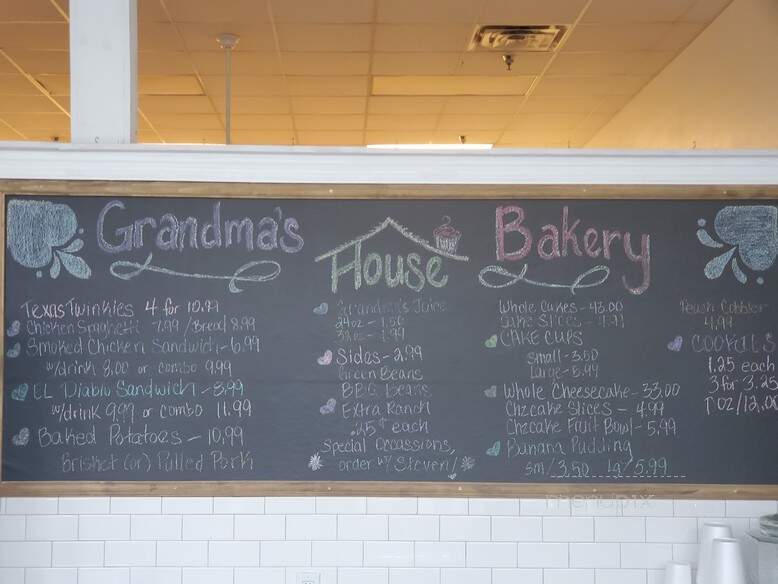 Grandma's
House
Bakery
Texas Twinkies 4 for 10.99
Chicken Spaghetti 7.99 / Bread 8.99
Smoked Chicken Sandwich - 6.99
w/drink 8.00 or combo 9.99
EL Diablo Sandwich - 8.99
w/drink 9.99 or combo 11.99
Baked Potatoes - 10.99
Brisket (or) Pulled Pork
Grandma's Juice
24oz - 1.50
32oz - 1.99
Sides - 2.99
Green Beans
BBQ Beans
Extra Ranch
.25¢ each
Special Occassions,
order w/ Steven!
Whole Cakes - 43.00
Cake Slices -
CAKE CUPS
Small - 3.50
Large - 5.99
Whole Cheesecake - 33.00
Chzcake Slices - 4.99
Chzcake Fruit Bowl - 5.99
Banana Pudding
sm/3.50 Lg/5.99
Peach Cobbler
4.99
COOKIES
1.25 each
3 for 3.25
menupix